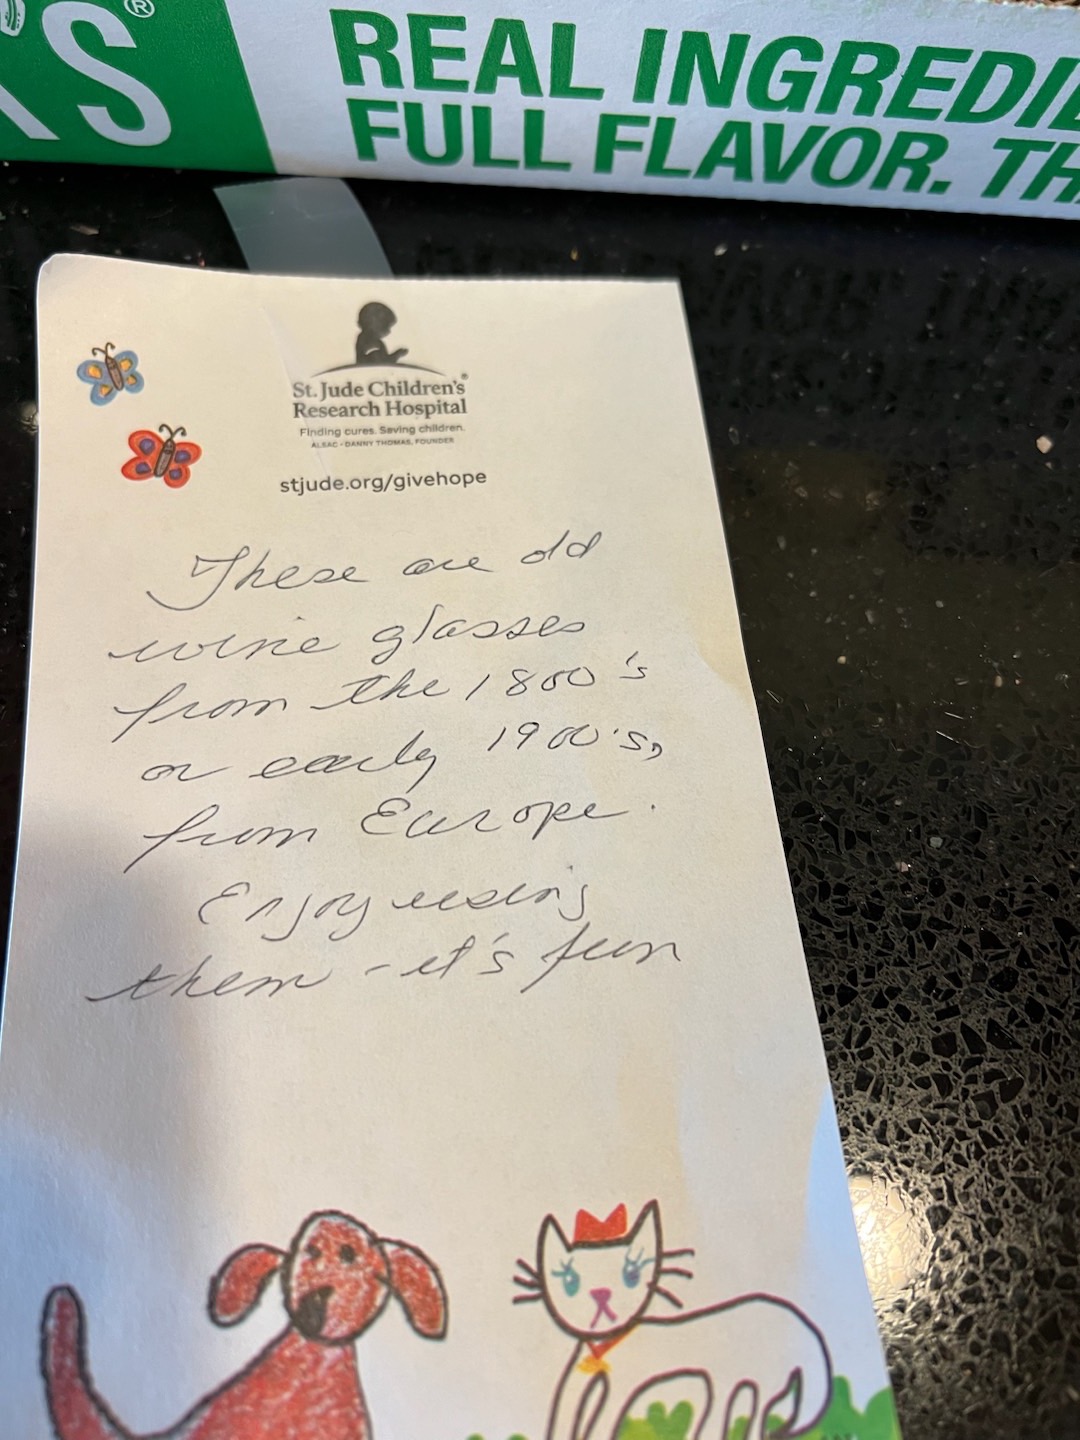 S®
REAL INGREDIE
FULL FLAVOR. TH
St. Jude Children's®
Research Hospital
Finding cures. Saving children.
ALSAC • DANNY THOMAS, FOUNDER
stjude.org/givehope
These are old
wine glasses
from the 1800's
or early 1900's,
from Europe.
Enjoy using
them - it's fun